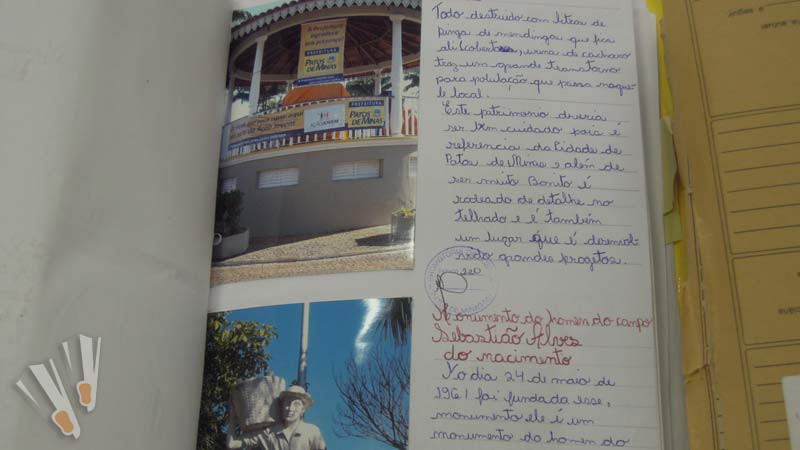 A Prefeitura
agradece
sua presença!
PREFEITURA
PATOS DE MINAS
PREFEITURA
PATOS
DE MINAS
AÇÃO JOVEM
Todo destruido com litros de
pinga de mendingos que fica
ali (cobertos, urina de cachoro
traz um grande transtorno
para polulação que passa naque-
le local.
Este patrimonio diveria
ser bem cuidado pois é
referencia da Cidade de
Patos de Minas e além de
ser muito Bonito é
rodeado de detalhe no
telhado e é também
um lugar que é desenvol-
vido grandes progetos.
220
Monumento do homem do campo
Sebastião Alves
do nacimento
No dia 24 de maio de
1961 foi fundada esse,
monumento ele é um
monumento do homem do